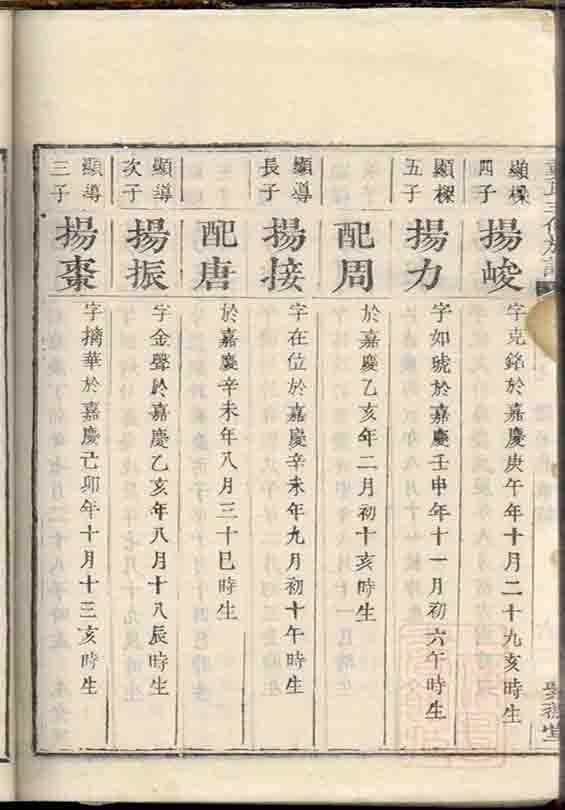 顯檪
四子
揚峻
字克銘於嘉慶庚午年十月二十九亥時生
顯檪
五子
揚力
字如琥於嘉慶壬申年十一月初六午時生
配周
於嘉慶乙亥年二月初十亥時生
顯導
長子
揚接
字在位於嘉慶辛未年九月初十午時生
配唐
於嘉慶辛未年八月三十巳時生
顯導
次子
揚振
字金聲於嘉慶乙亥年八月十八辰時生
顯導
三子
揚棗
字摛華於嘉慶己卯年十月十三亥時生